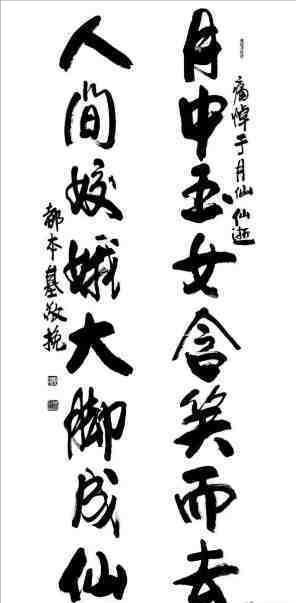 痛悼于月仙仙逝
月中玉女含笑而去
人间姣娥大脚成仙
都本基敬挽